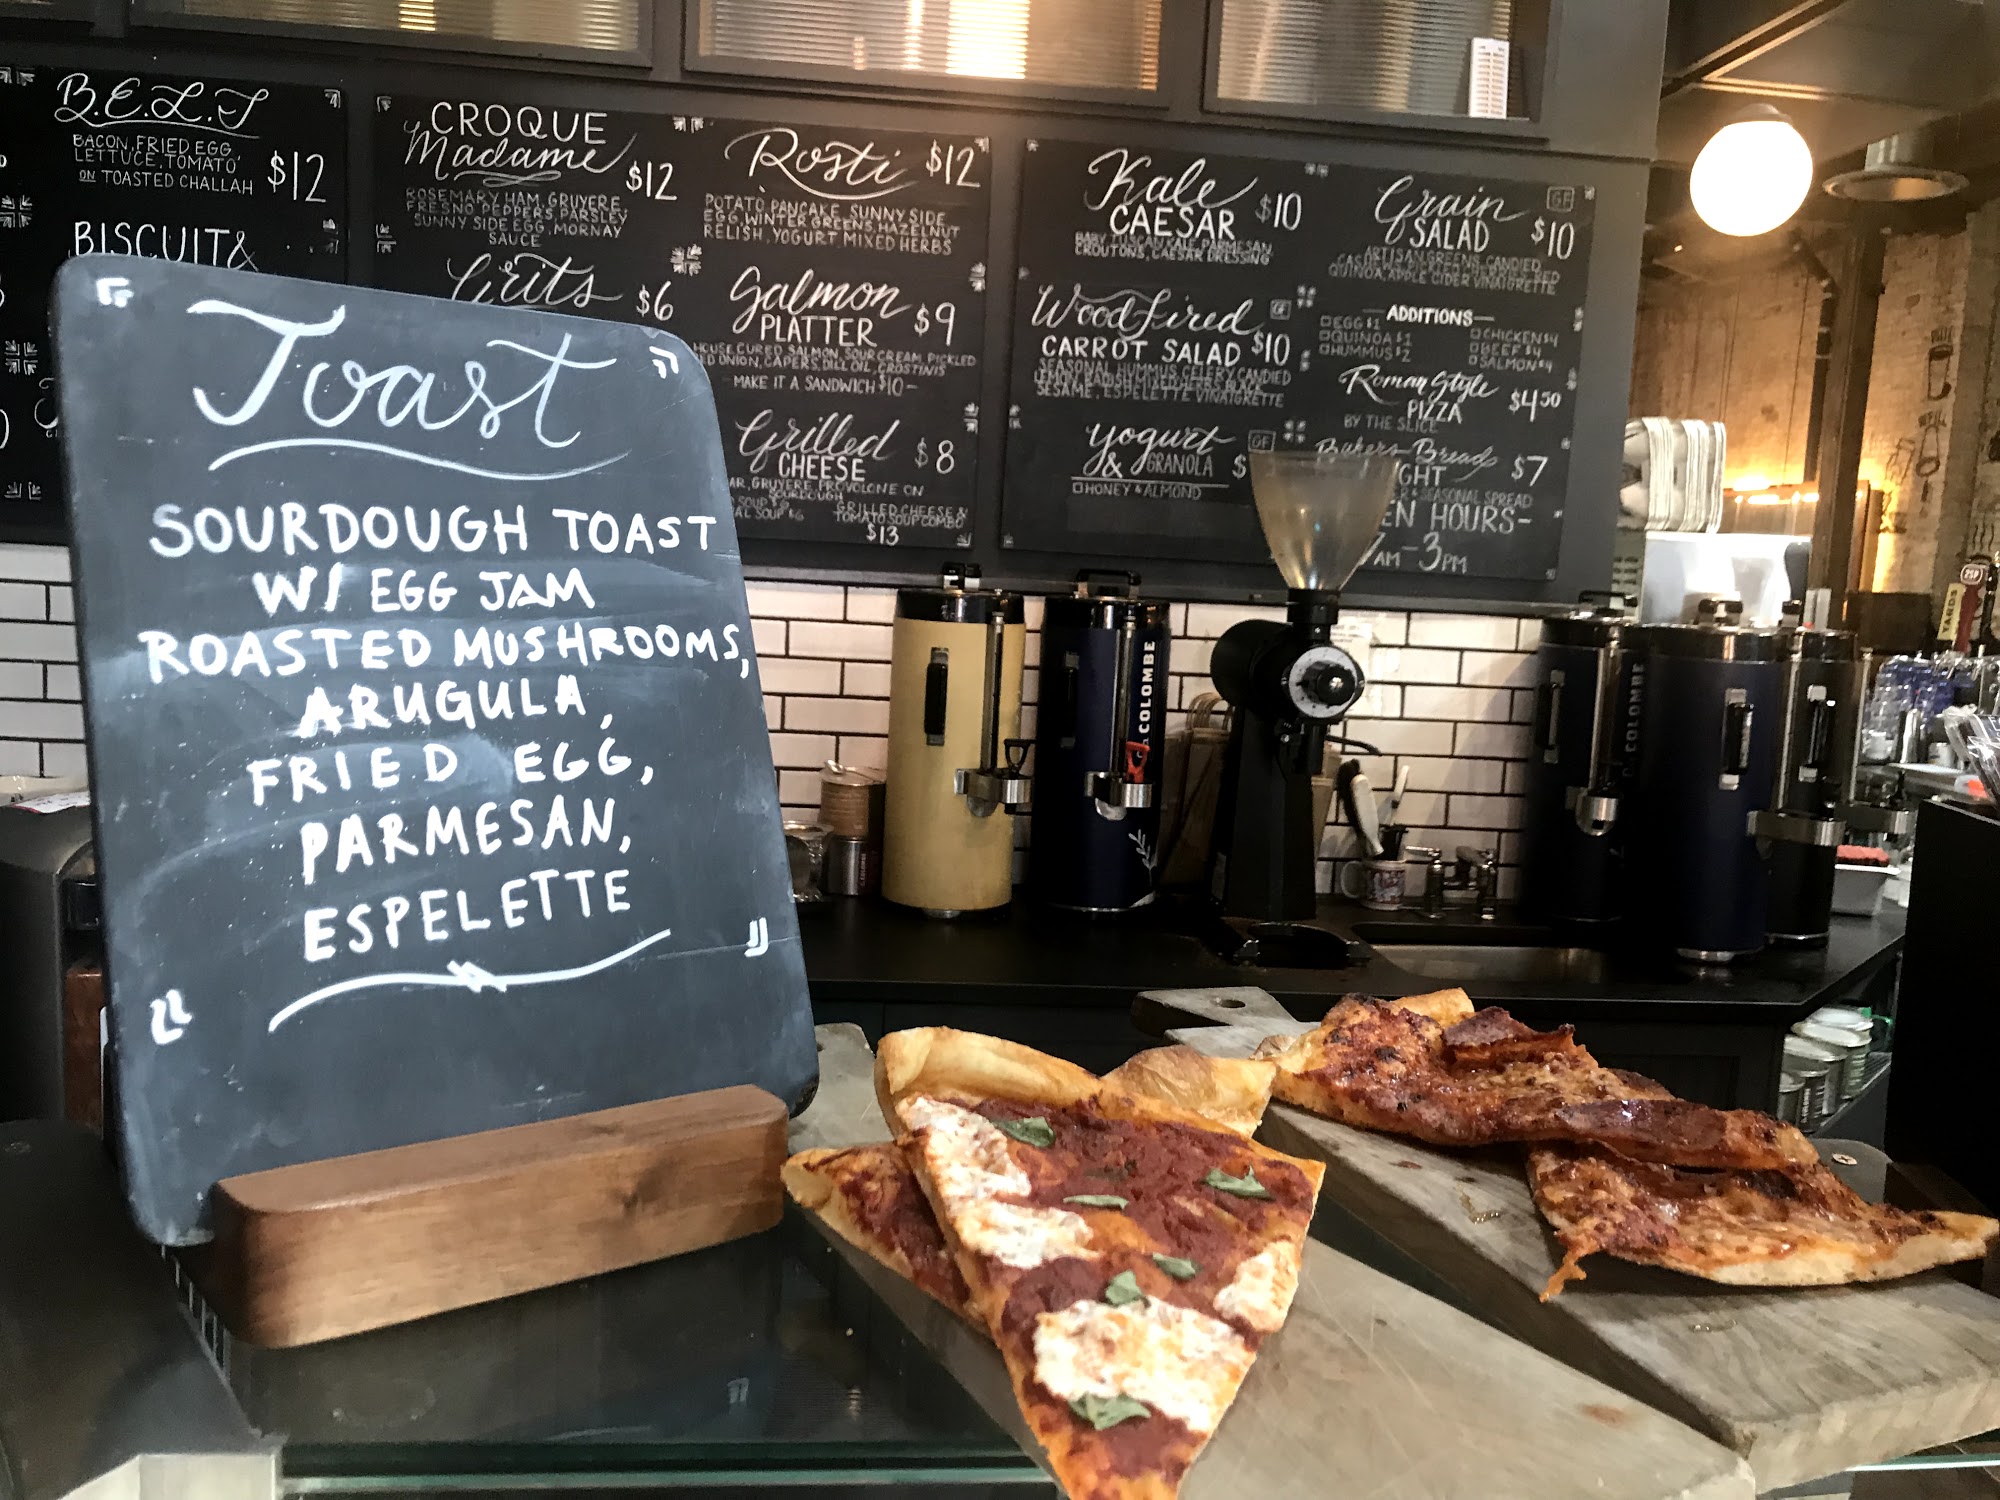 B.E.L.T
BACON, FRIED EGG
LETTUCE, TOMATO
ON TOASTED CHALLAH
$12
BISCUIT &
CROQUE
Madame
$12
ROSEMARY HAM, GRUYERE
FRESNO PEPPERS, PARSLEY
SUNNY SIDE EGG, MORNAY
SAUCE
Grits $6
Rosti $12
POTATO PANCAKE, SUNNY SIDE
EGG, WINTER GREENS, HAZELNUT
RELISH, YOGURT MIXED HERBS
Salmon
PLATTER $9
HOUSE CURED SALMON, SOUR CREAM, PICKLED
ONION, CAPERS, DILL OIL, CROSTINIS
- MAKE IT A SANDWICH $10 -
Grilled
CHEESE $8
GRUYERE, PROVOLONE ON
SOURDOUGH
SOUP $
SOUP $6
GRILLED CHEESE &
TOMATO SOUP COMBO
$13
Kale
CAESAR $10
BABY TUSCAN KALE, PARMESAN
CROUTONS, CAESAR DRESSING
Wood fired GF
CARROT SALAD $10
SEASONAL HUMMUS, CELERY, CANDIED
SESAME, ESPELETTE VINAIGRETTE
Yogurt GF
& GRANOLA $
HONEY & ALMOND
Grain GF
SALAD $10
ARTISAN GREENS, CANDIED
QUINOA, APPLE CIDER VINAIGRETTE
— ADDITIONS —
EGG $1
QUINOA $1
HUMMUS $2
CHICKEN $4
BEEF $4
SALMON $4
Roman Style
PIZZA $4.50
BY THE SLICE
Bakers Breads
GHT $7
& SEASONAL SPREAD
EN HOURS-
7AM - 3PM
Toast
SOURDOUGH TOAST
W/ EGG JAM
ROASTED MUSHROOMS,
ARUGULA,
FRIED EGG,
PARMESAN,
ESPELETTE
COLOMBE
COLOMBE
YARDS
2SP